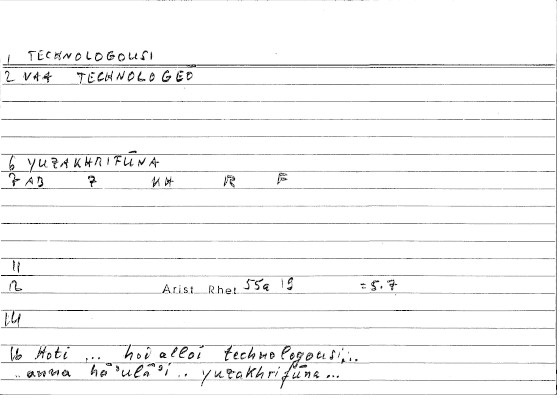 1 TECHNOLOGOUSI
2 VAA TECHNOLOGEO
6 YUZAKHRIFŪNA
7 AB Z KH R F
11
12 Arist Rhet 55a 19 =5.7
14
16 Hoti ... hoi alloi technologousi...
..anna hā'ulā'i.. yuzakhrifūna...